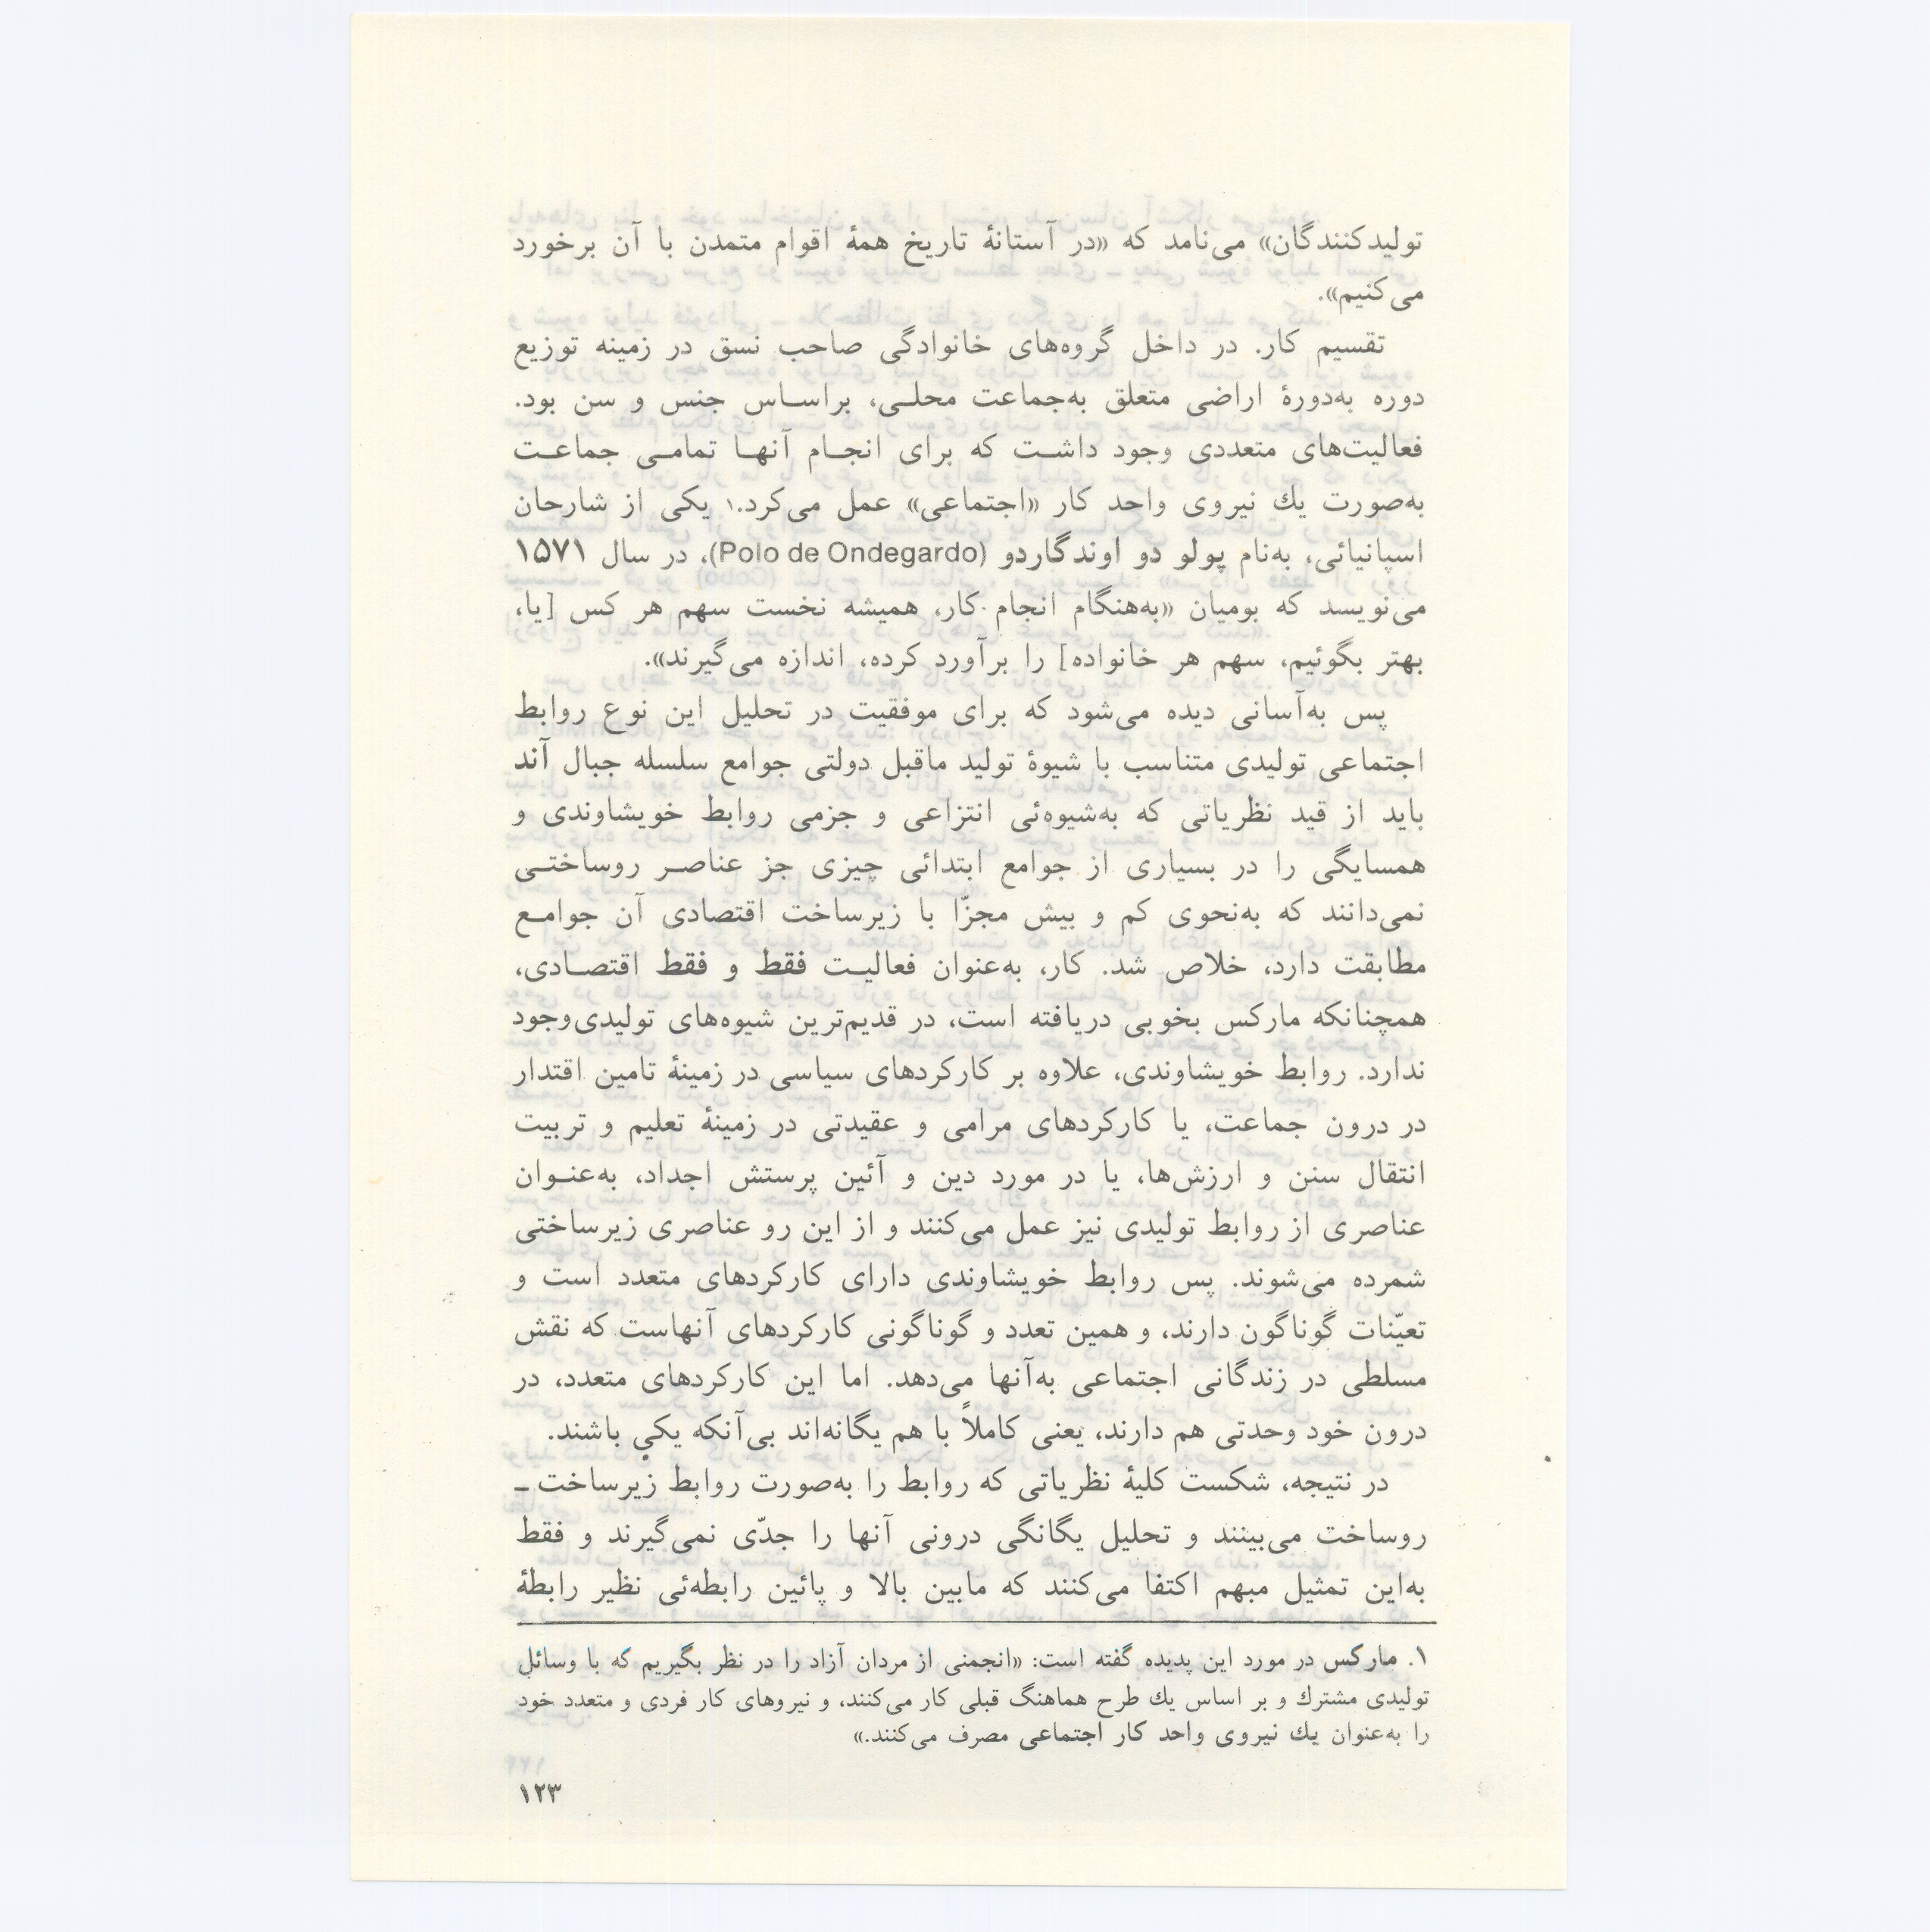 تولیدکنندگان» می‌نامد که «در آستانهٔ تاریخ همهٔ اقوام متمدن با آن برخورد
می‌کنیم».
تقسیم کار. در داخل گروه‌های خانوادگی صاحب نسق در زمینه توزیع
دوره به‌دورهٔ اراضی متعلق به‌جماعت محلی، براساس جنس و سن بود.
فعالیت‌های متعددی وجود داشت که برای انجام آنها تمامی جماعت
به‌صورت یك نیروی واحد کار «اجتماعی» عمل می‌کرد.۱ یکی از شارحان
اسپانیائی، به‌نام پولو دو اوندگاردو (Polo de Ondegardo)، در سال ۱۵۷۱
می‌نویسد که بومیان «به‌هنگام انجام کار، همیشه نخست سهم هر کس [یا،
بهتر بگوئیم، سهم هر خانواده] را برآورد کرده، اندازه می‌گیرند».
پس به‌آسانی دیده می‌شود که برای موفقیت در تحلیل این نوع روابط
اجتماعی تولیدی متناسب با شیوهٔ تولید ماقبل دولتی جوامع سلسله جبال آند
باید از قید نظریاتی که به‌شیوه‌ئی انتزاعی و جزمی روابط خویشاوندی و
همسایگی را در بسیاری از جوامع ابتدائی چیزی جز عناصر روساختی
نمی‌دانند که به‌نحوی کم و بیش مجزّا با زیرساخت اقتصادی آن جوامع
مطابقت دارد، خلاص شد. کار، به‌عنوان فعالیت فقط و فقط اقتصادی،
همچنانکه مارکس بخوبی دریافته است، در قدیم‌ترین شیوه‌های تولیدی‌وجود
ندارد. روابط خویشاوندی، علاوه بر کارکردهای سیاسی در زمینهٔ تامین اقتدار
در درون جماعت، یا کارکردهای مرامی و عقیدتی در زمینهٔ تعلیم و تربیت
انتقال سنن و ارزش‌ها، یا در مورد دین و آئین پرستش اجداد، به‌عنوان
عناصری از روابط تولیدی نیز عمل می‌کنند و از این رو عناصری زیرساختی
شمرده می‌شوند. پس روابط خویشاوندی دارای کارکردهای متعدد است و
تعیّنات گوناگون دارند، و همین تعدد و گوناگونی کارکردهای آنهاست که نقش
مسلطی در زندگانی اجتماعی به‌آنها می‌دهد. اما این کارکردهای متعدد، در
درون خود وحدتی هم دارند، یعنی کاملاً با هم یگانه‌اند بی‌آنکه یکی باشند.
در نتیجه، شکست کلیهٔ نظریاتی که روابط را به‌صورت روابط زیرساخت ـ
روساخت می‌بینند و تحلیل یگانگی درونی آنها را جدّی نمی‌گیرند و فقط
به‌این تمثیل مبهم اکتفا می‌کنند که مابین بالا و پائین رابطه‌ئی نظیر رابطهٔ
۱. مارکس در مورد این پدیده گفته است: «انجمنی از مردان آزاد را در نظر بگیریم که با وسائل
تولیدی مشترك و بر اساس یك طرح هماهنگ قبلی کار می‌کنند، و نیروهای کار فردی و متعدد خود
را به‌عنوان یك نیروی واحد کار اجتماعی مصرف می‌کنند.»
۱۲۳